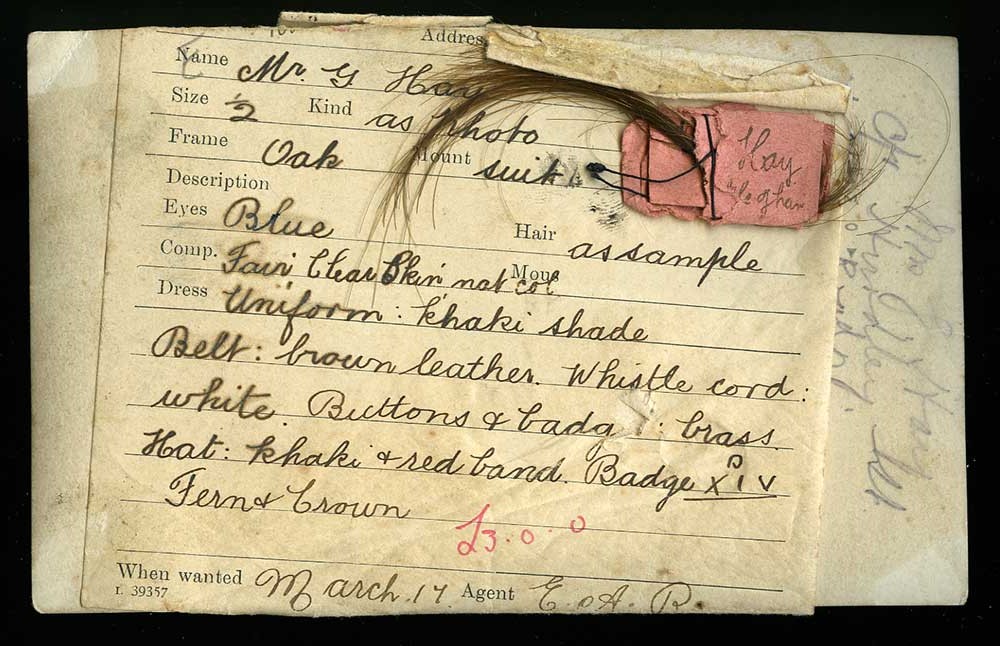 Address
Name Mr. G Hay
Size ½ Kind as Photo
Frame Oak Mount suit
Description
Eyes Blue Hair as sample
Comp. Fair Clear Skin nat col
Dress Uniform : khaki shade
Belt : brown leather. Whistle cord :
white. Buttons & badg : brass.
Hat : khaki & red band. Badge XIV
Fern & Crown
£3.0.0
When wanted March. 17 Agent E. A. R.
I. 39357
Hay